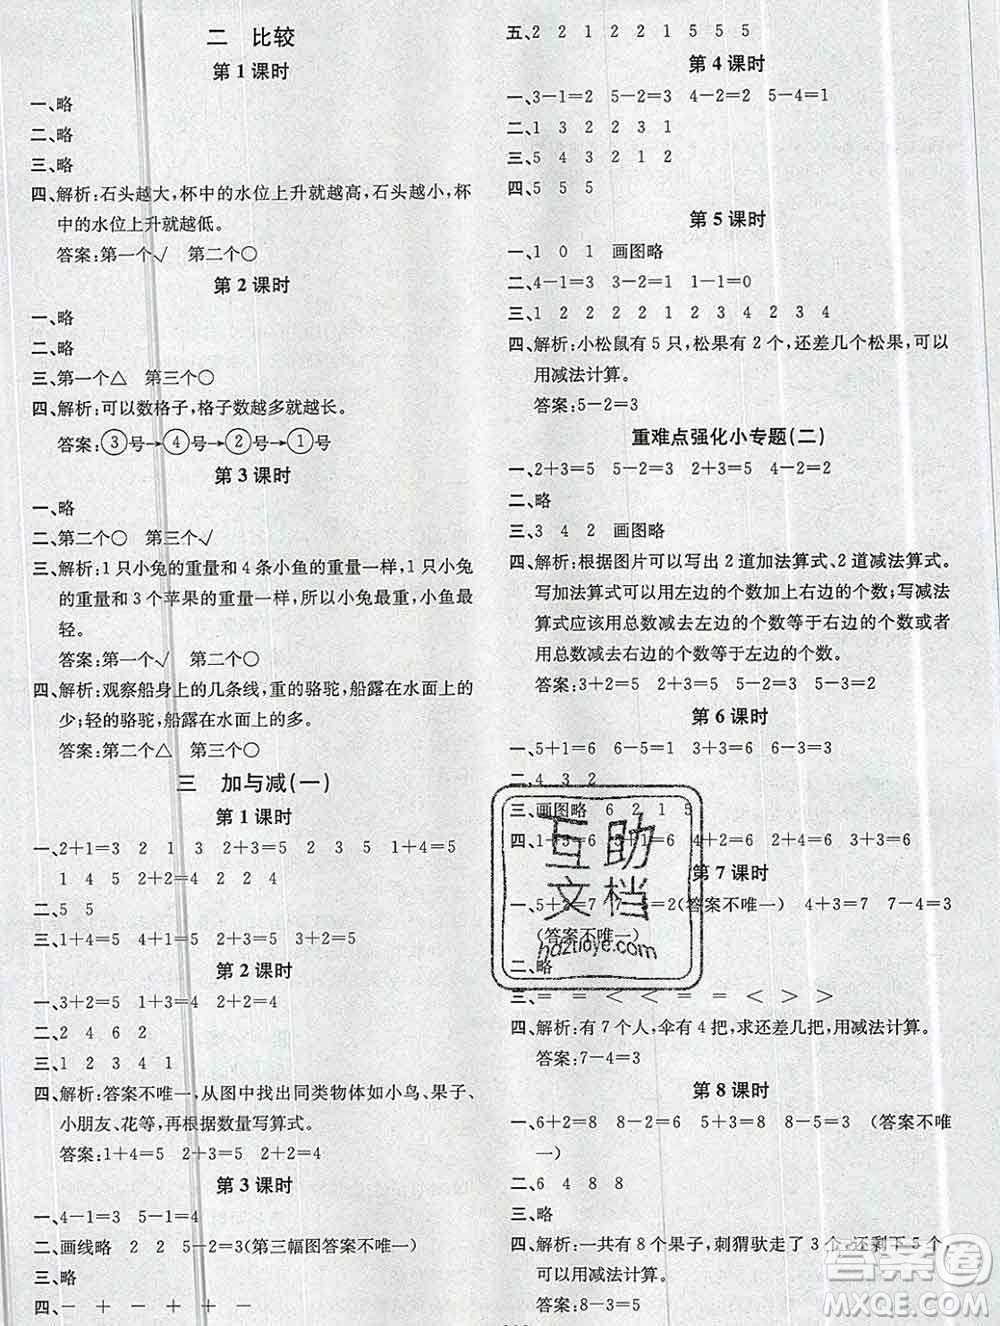 二 比较
第1课时
一、略
二、略
三、略
四、解析:石头越大,杯中的水位上升就越高,石头越小,杯
中的水位上升就越低。
答案:第一个√ 第二个○
第2课时
一、略
二、略
三、第一个△ 第三个○
四、解析:可以数格子,格子数越多就越长。
答案:③号→④号→②号→①号
第3课时
一、略
二、第二个○ 第三个√
三、解析:1只小兔的重量和4条小鱼的重量一样,1只小兔
的重量和3个苹果的重量一样,所以小兔最重,小鱼最
轻。
答案:第一个√ 第二个○
四、解析:观察船身上的几条线,重的骆驼,船露在水面上的
少;轻的骆驼,船露在水面上的多。
答案:第二个△ 第三个○
三 加与减(一)
第1课时
一、2+1=3 2 1 3 2+3=5 2 3 5 1+4=5
1 4 5 2+2=4 2 2 4
二、5 5
三、1+4=5 4+1=5 2+3=5 3+2=5
第2课时
一、3+2=5 1+3=4 2+2=4
二、2 4 6 2
三、1 2 3 4 1
四、解析:答案不唯一,从图中找出同类物体如小鸟、果子、
小朋友、花等,再根据数量写算式。
答案:1+4=5 2+3=5 2+2=4
第3课时
一、4-1=3 5-1=4
二、画线略 2 2 5-2=3(第三幅图答案不唯一)
三、略
四、- + - + + -
五、2 2 1 2 2 1 5 5 5
第4课时
一、3-1=2 5-2=3 4-2=2 5-4=1
二、1 3 2 2 3 1
三、5 4 3 2 1 2
四、5 5 5
第5课时
一、1 0 1 画图略
二、4-1=3 3-2=1 1-1=0
三、1 2 2 2 1 2 3 4 2 3 4
四、解析:小松鼠有5只,松果有2个,还差几个松果,可以
用减法计算。
答案:5-2=3
重难点强化小专题(二)
一、2+3=5 5-2=3 2+3=5 4-2=2
二、略
三、3 4 2 画图略
四、解析:根据图片可以写出2道加法算式、2道减法算式。
写加法算式可以用左边的个数加上右边的个数;写减法
算式应该用总数减去左边的个数等于右边的个数或者
用总数减去右边的个数等于左边的个数。
答案:3+2=5 2+3=5 5-2=3 5-3=2
第6课时
一、5+1=6 6-5=1 3+3=6 6-3=3
二、4 3 2
三、画图略 6 2 1 5
四、1+3=4 3+1=4 4+2=6 2+4=6 3+3=6
第7课时
一、5+2=7 7-5=2(答案不唯一) 4+3=7 7-4=3
(答案不唯一)
二、略
三、= = < < = = < > >
四、解析:有7个人,伞有4把,求还差几把,用减法计算。
答案:7-4=3
第8课时
一、6+2=8 8-2=6 5+3=8 8-5=3 (答案不唯
一)
二、6 4 8 8
三、略
四、解析:一共有8个果子,刺猬驮走了3个,还剩下5个,
可以用减法计算。
答案:8-3=5
互助
文档
hdzuoye.com
答案圈
MXQE.COM